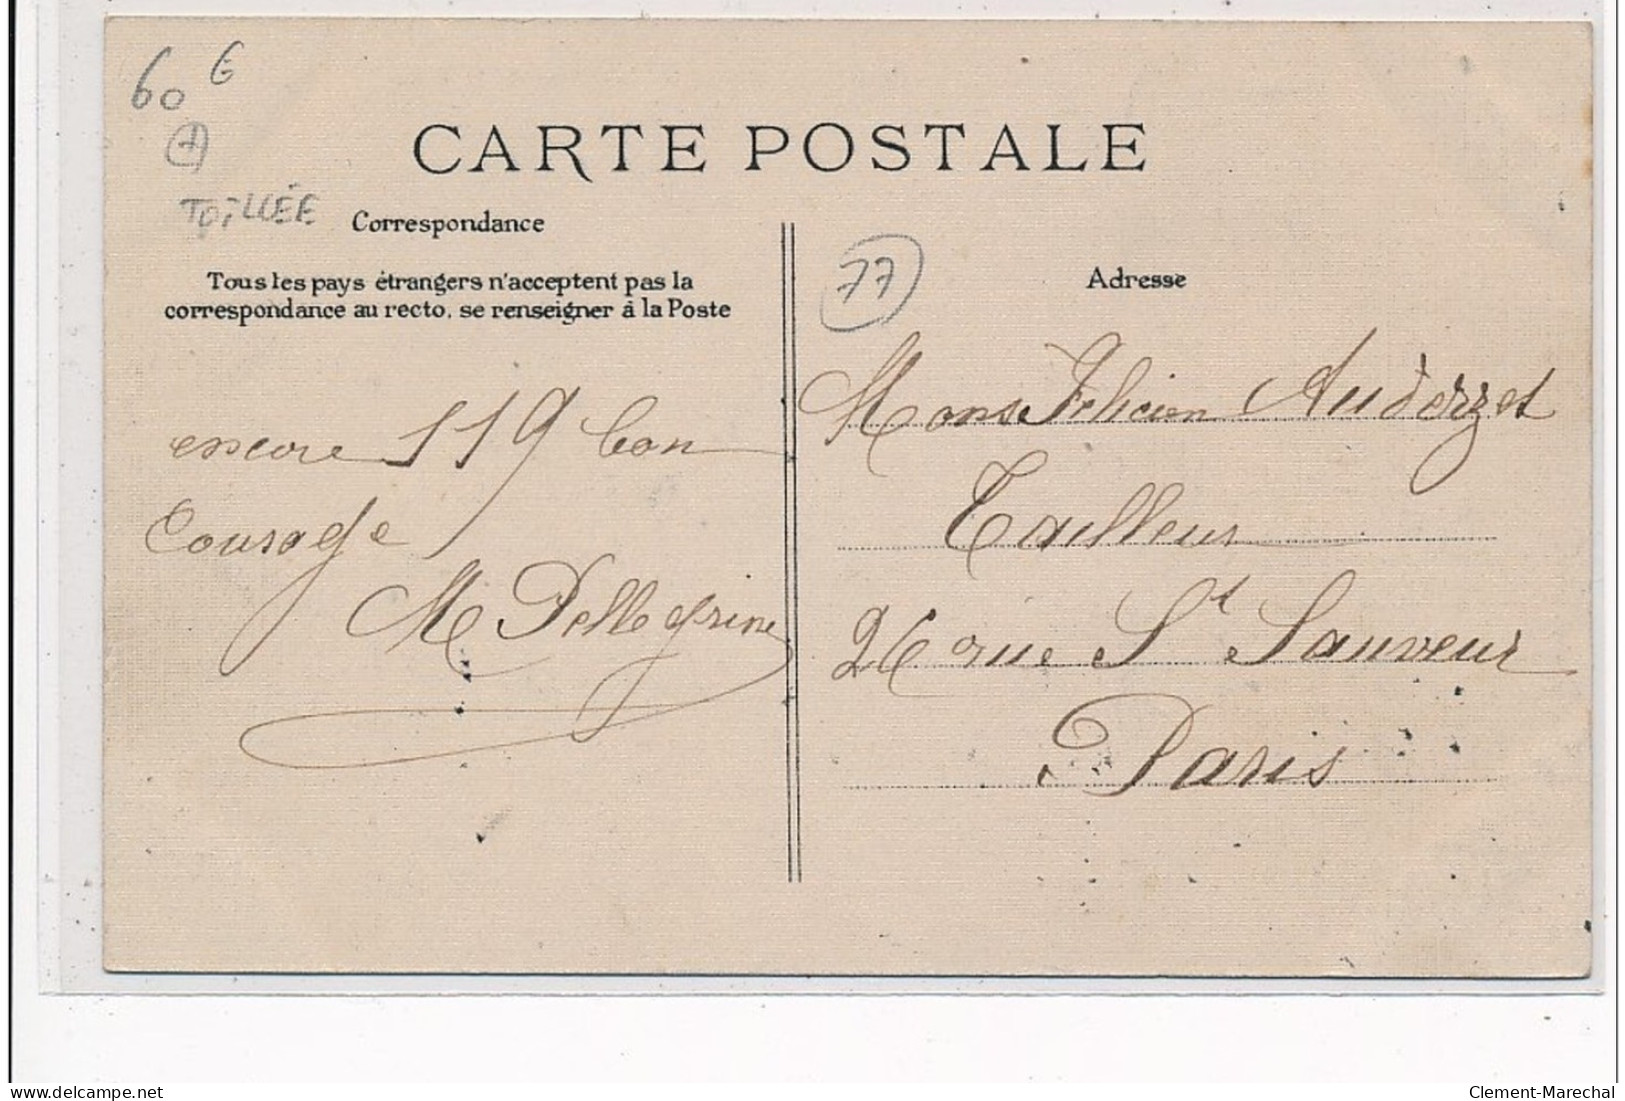 60 €
TOiLLÉE
CARTE POSTALE
Correspondance
Tous les pays étrangers n'acceptent pas la
correspondance au recto, se renseigner à la Poste
encore 119 bon
Courage
M Pellegrine
77
Adresse
Mons Felicien Auderzet
Tailleur
26 rue St Sauveur
Paris
delcampe.net
Clement-Marechal